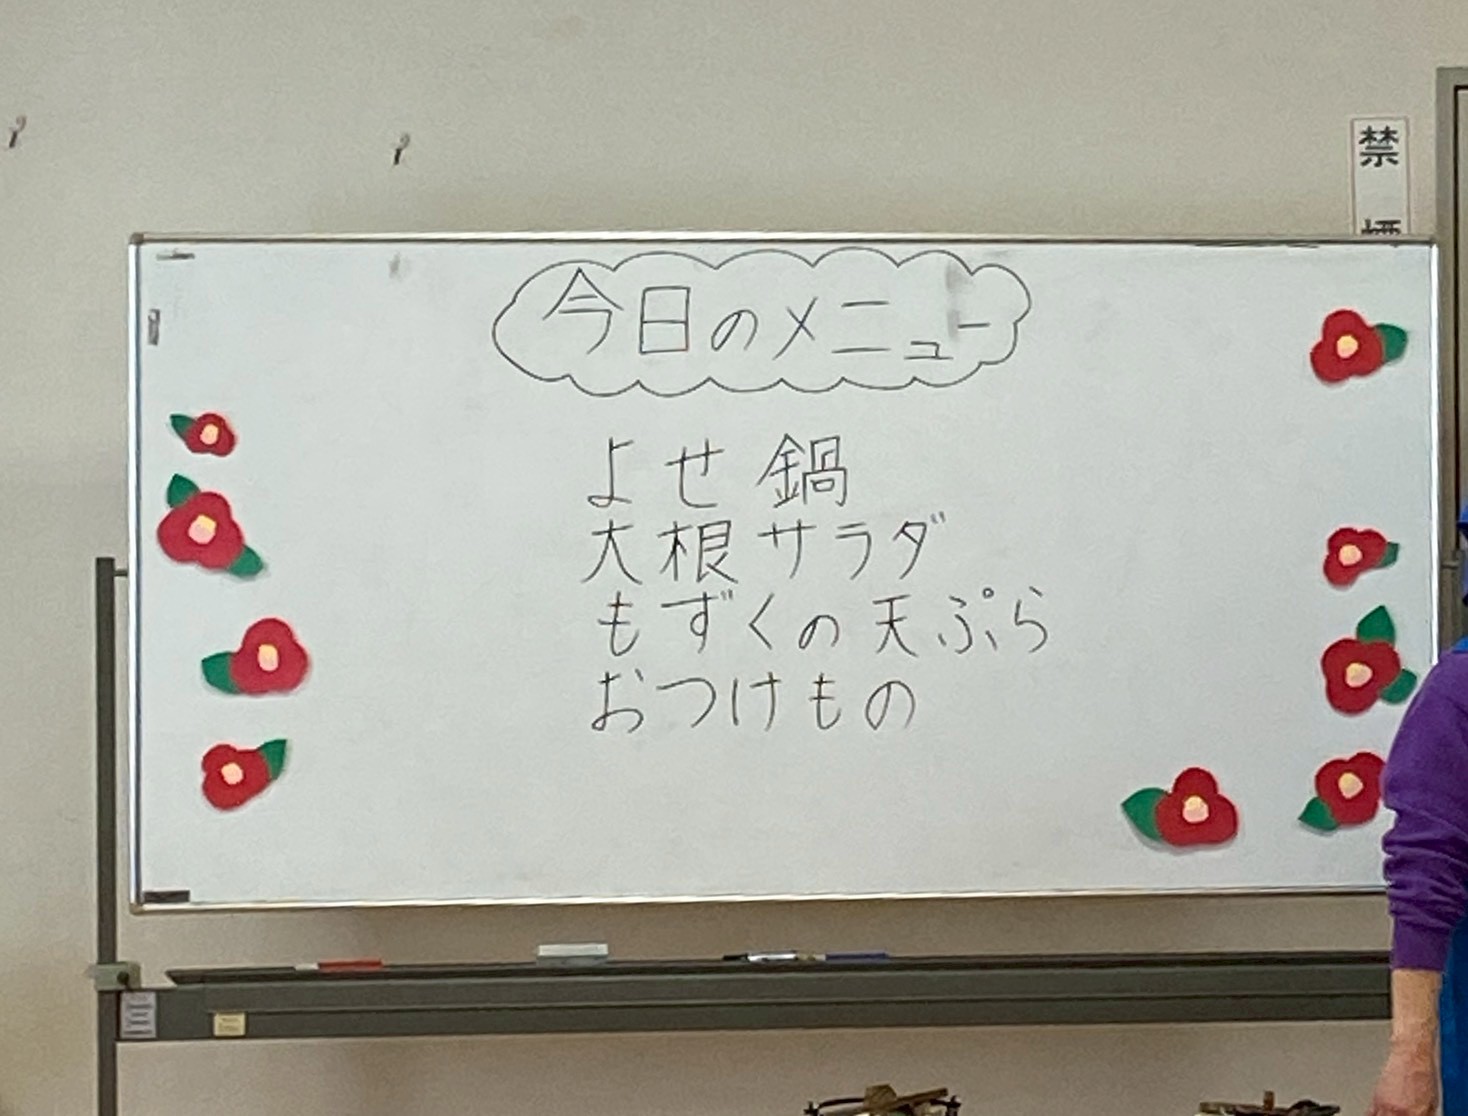 今日のメニュー
よせ鍋
大根サラダ
もずくの天ぷら
おつけもの
禁